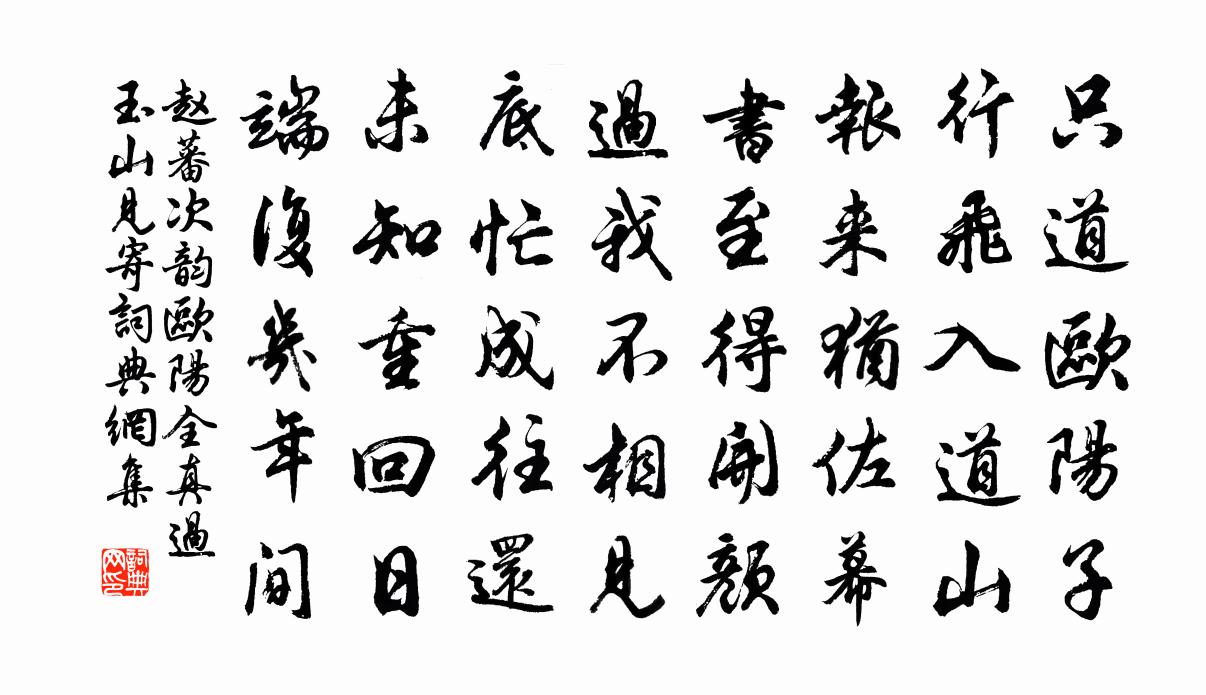 只道歐陽子
行飛入道山
報来猶佐幕
書至得開顔
過我不相見
底忙成往還
未知重回日
端復幾年间
赵蕃次韵歐陽全真過
玉山見寄詞典網集
詞典网印